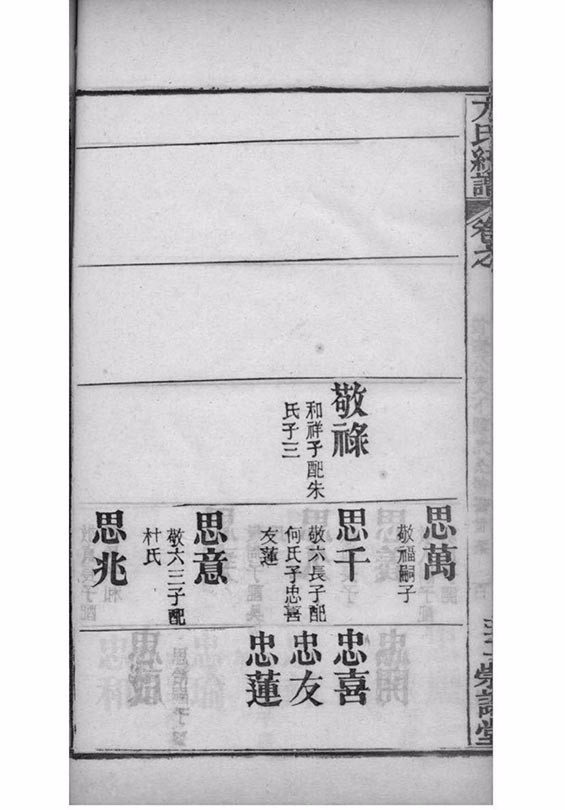 氏
譜
卷之
敬祿
和祥子配朱
氏子三
思萬
敬福嗣子
思千
敬六長子配
何氏子忠喜
友蓮
思意
敬六三子配
杜氏
思兆
忠喜
忠友
忠蓮